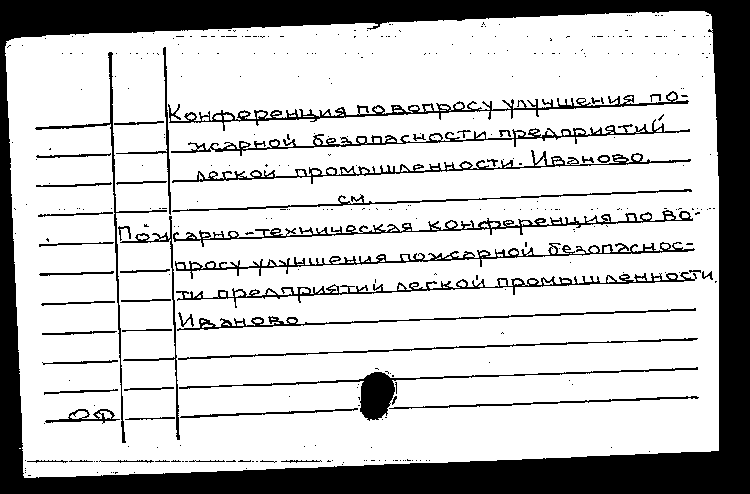 Конференция по вопросу улучшения по-
жарной безопасности предприятий
легкой промышленности. Иваново.
см.
Пожарно-техническая конференция по во-
просу улучшения пожарной безопаснос-
ти предприятий легкой промышленности.
Иваново.
ОФ